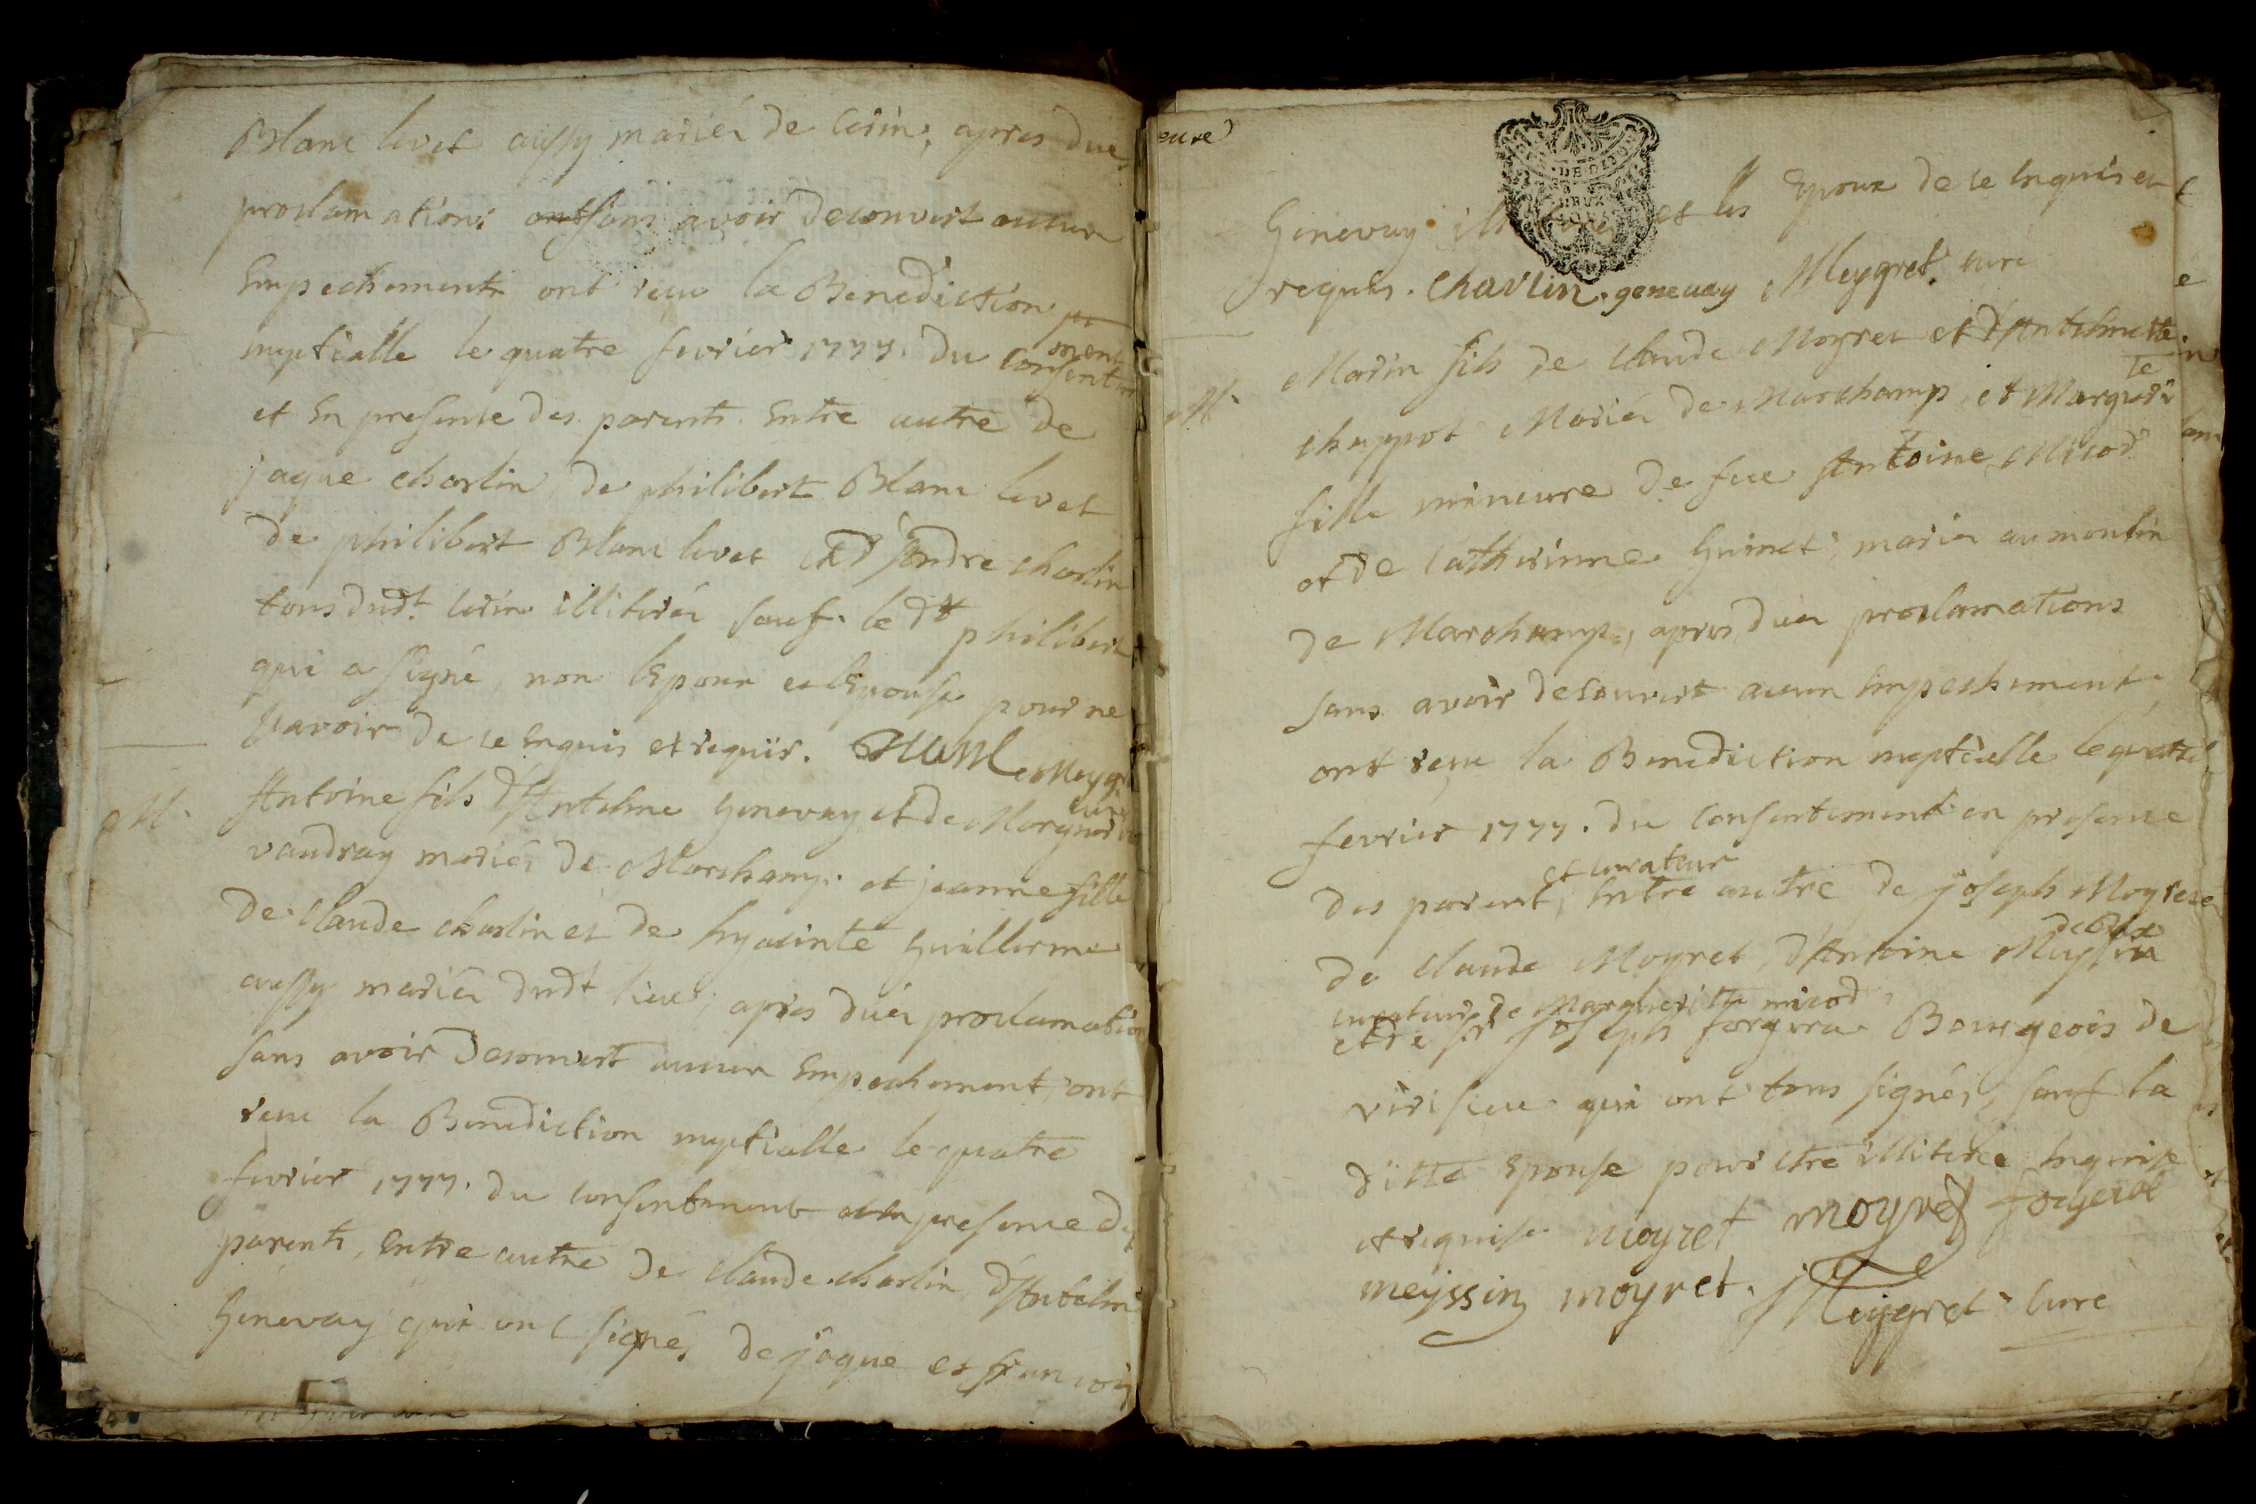 Blanc livet aussy mariés de Cerin; apres dues
proclamations sans avoir decouvert aucun
Empechements ont reçu la Benediction
nuptialle le quatre fevrier 1777. du consentement
et En presence des parents Entre autre de
jaque charlin, de philibert Blanc livet
de philibert Blanc livet Et d'Andre charlin
tous dudt. Cerin illiterés sauf le dt philibert
qui a signé, non l'Epoux et l'Epouse pour ne
sçavoir de ce Enquis et requis. Blanc Meygret
curé
M.
Antoine fils d'Antelme Genevay et de Marguerite
vaudray mariés de Marchamp. et jeanne fille
de Claude charlin et de hyacinte Guillerme
aussy mariés dudt lieu; apres dües proclamation
sans avoir decouvert aucun Empechement, ont
reçu la Benediction nuptialle le quatre
fevrier 1777. du consentement en presence des
parents, Entre autre de Claude charlin, d'Antelme
Genevay qui ont signés, de jaque et francois
eure
Genevay et les Epoux de ce Enquis et
requis. Charlin. genevay Meygret curé
M.
Marin fils de Claude Moyret et d'Anthelmette
chappot Mariés de Marchamp, et Marguerite
fille mineure de feu Antoine Micod
et de Catherinne Guinet, mariés au moulin
de Marchamp, apres dues proclamations
sans avoir decouvert aucun Empechement,
ont reçu la Benediction nuptialle le quatre
fevrier 1777. du consentement en presence
et curateur
des parents, Entre autre de joseph Moyret
de Claude Moyret, d'Antoine Meyssin
curateur de Marguerite micod,
et de sr joseph forgera Bourgeois de
virisieu qui ont tous signés, sauf la
ditte Epouse pour etre illiterée Enquise
et requise moyret moyret
meyssin moyret. Meygret curé